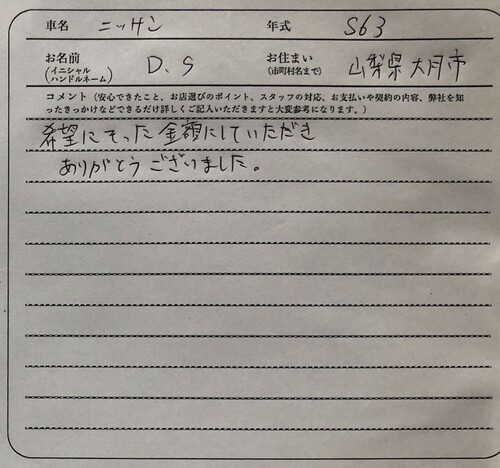 車名 ニッサン 年式 S63
お名前 (イニシャル ハンドルネーム) D.S お住まい (市町村名まで) 山梨県大月市
コメント（安心できたこと、お店選びのポイント、スタッフの対応、お支払いや契約の内容、弊社を知
ったきっかけなどできるだけ詳しくご記入いただきますと大変参考になります。）
希望にそった金額にしていただき
ありがとうございました。